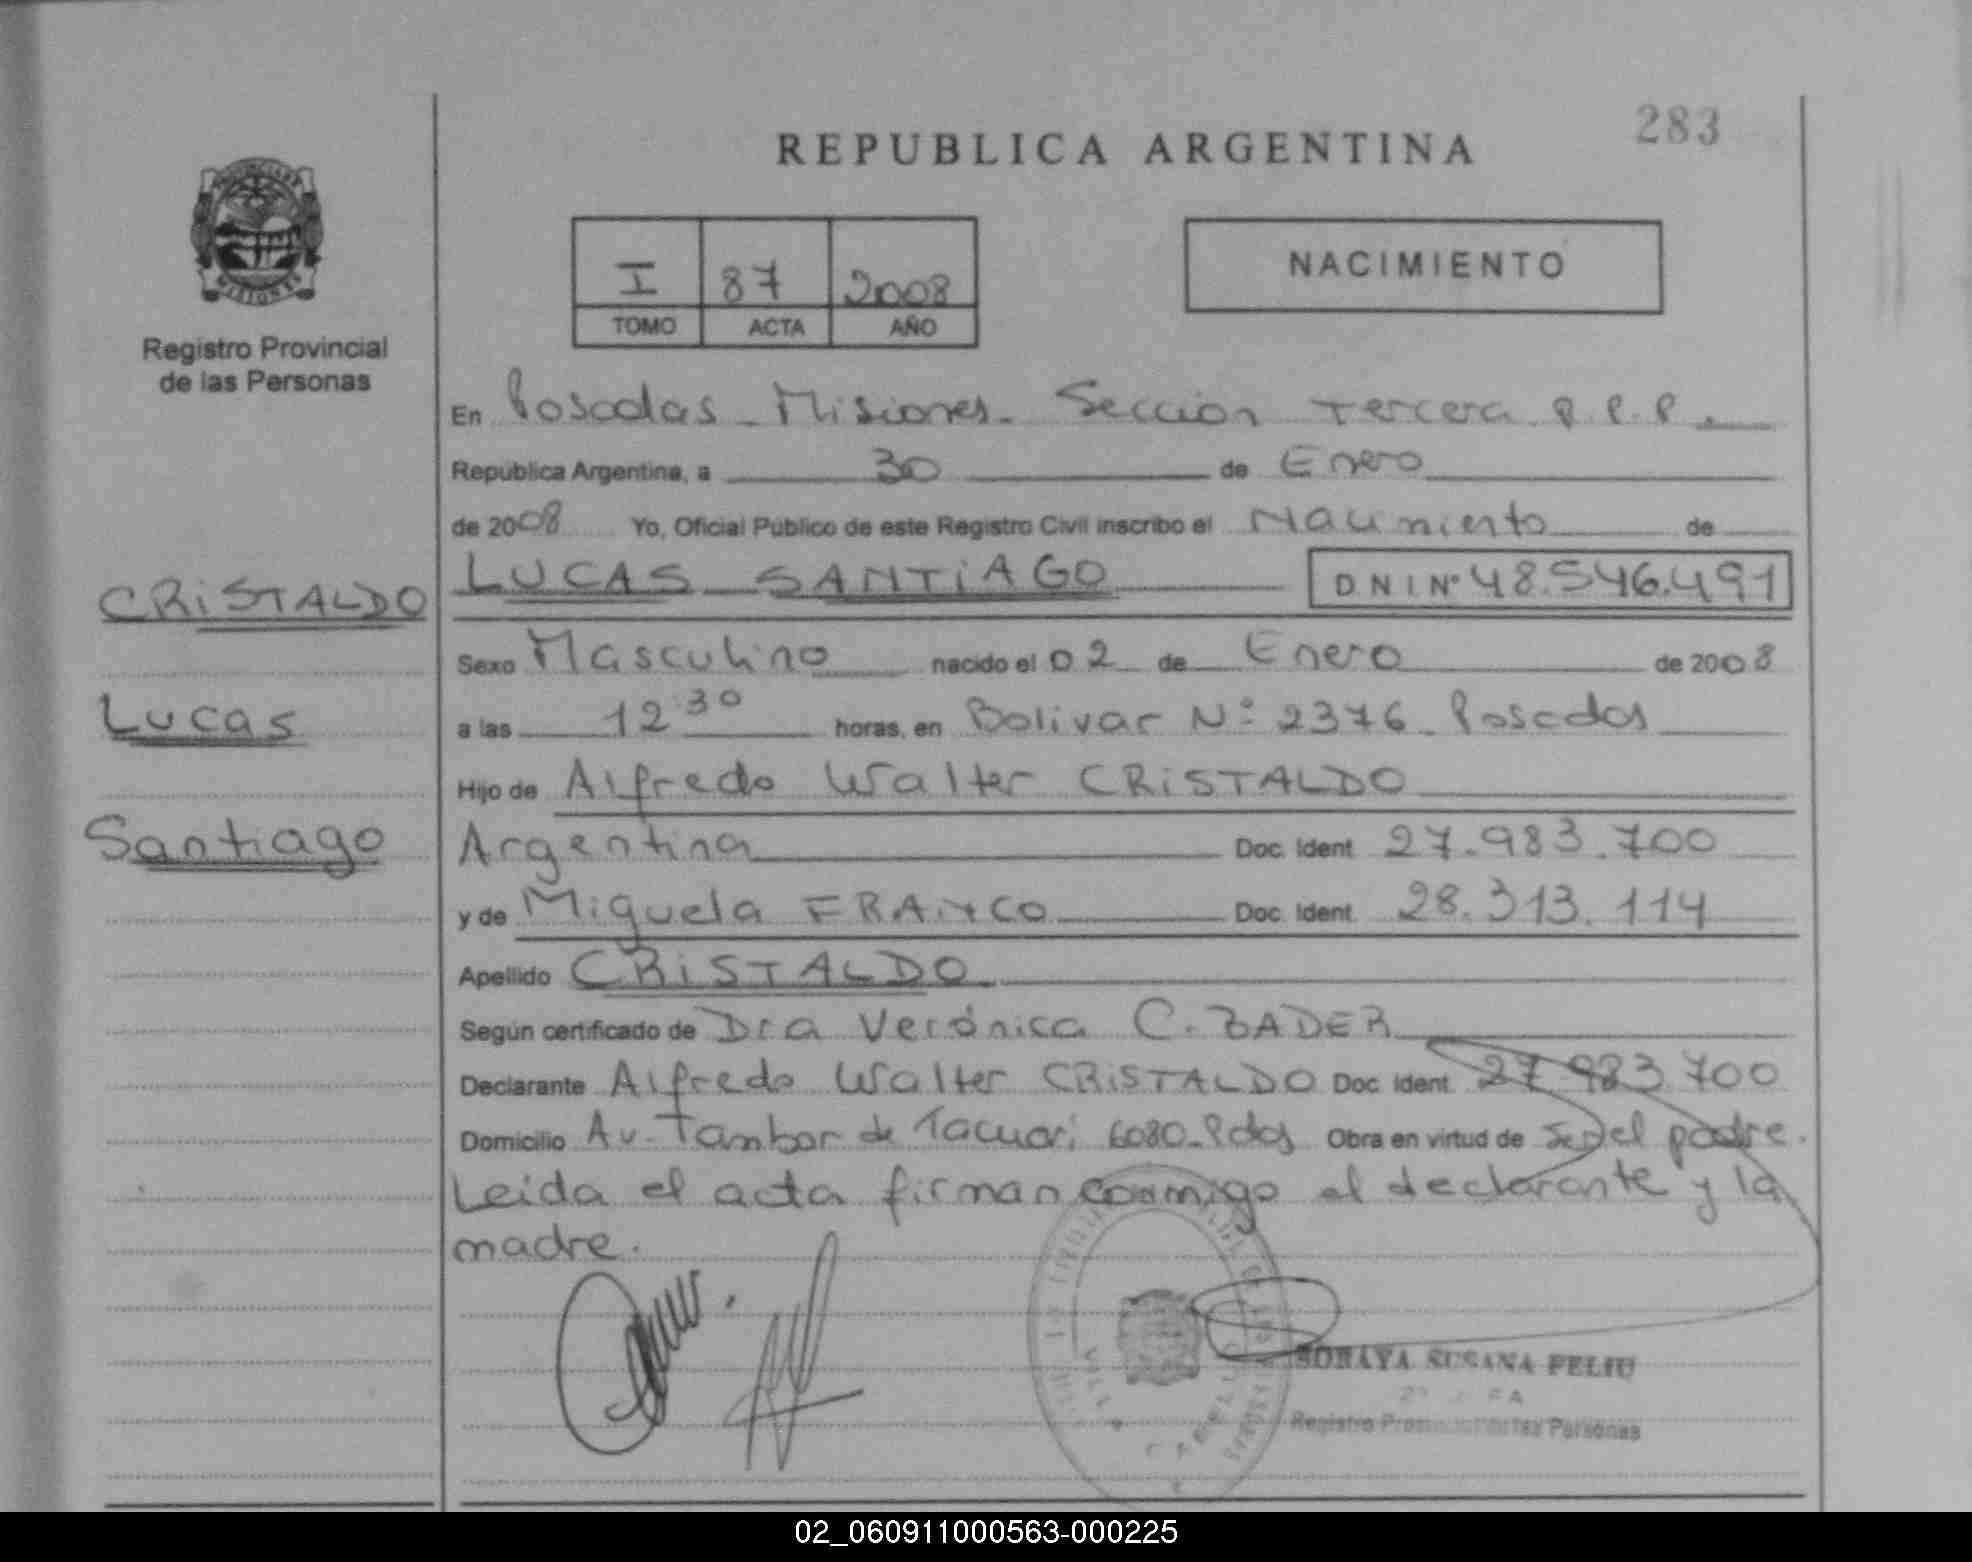 283
REPUBLICA ARGENTINA
I 87 2008
TOMO ACTA AÑO
NACIMIENTO
PROVINCIA DE MISIONES
Registro Provincial
de las Personas
CRiSTALDO
Lucas
Santiago
En Posadas - Misiones - Seccion Tercera R.P.P.
Republica Argentina, a 30 de Enero
de 2008 Yo, Oficial Público de este Registro Civil inscribo el Nacimiento de
LUCAS SANTiAGO D N I Nº 48.546.491
Sexo Masculino nacido el 02 de Enero de 2008
a las 12 30 horas, en Bolivar Nº 2376 - Posadas
Hijo de Alfredo Walter CRiSTALDO
Argentina Doc. Ident. 27.983.700
y de Miguela FRANCO Doc. Ident. 28.313.114
Apellido CRiSTALDO
Según certificado de Dra Verónica C. BADER
Declarante Alfredo Walter CRiSTALDO Doc Ident. 27 983 700
Domicilio Av. Tambor de Tacuari 6080 - Pdas Obra en virtud de Ser el padre.
Leida el acta firman conmigo el declarante y la
madre.
SORAYA SUSANA FELIU
Registro Provincial de las Personas
02_060911000563-000225